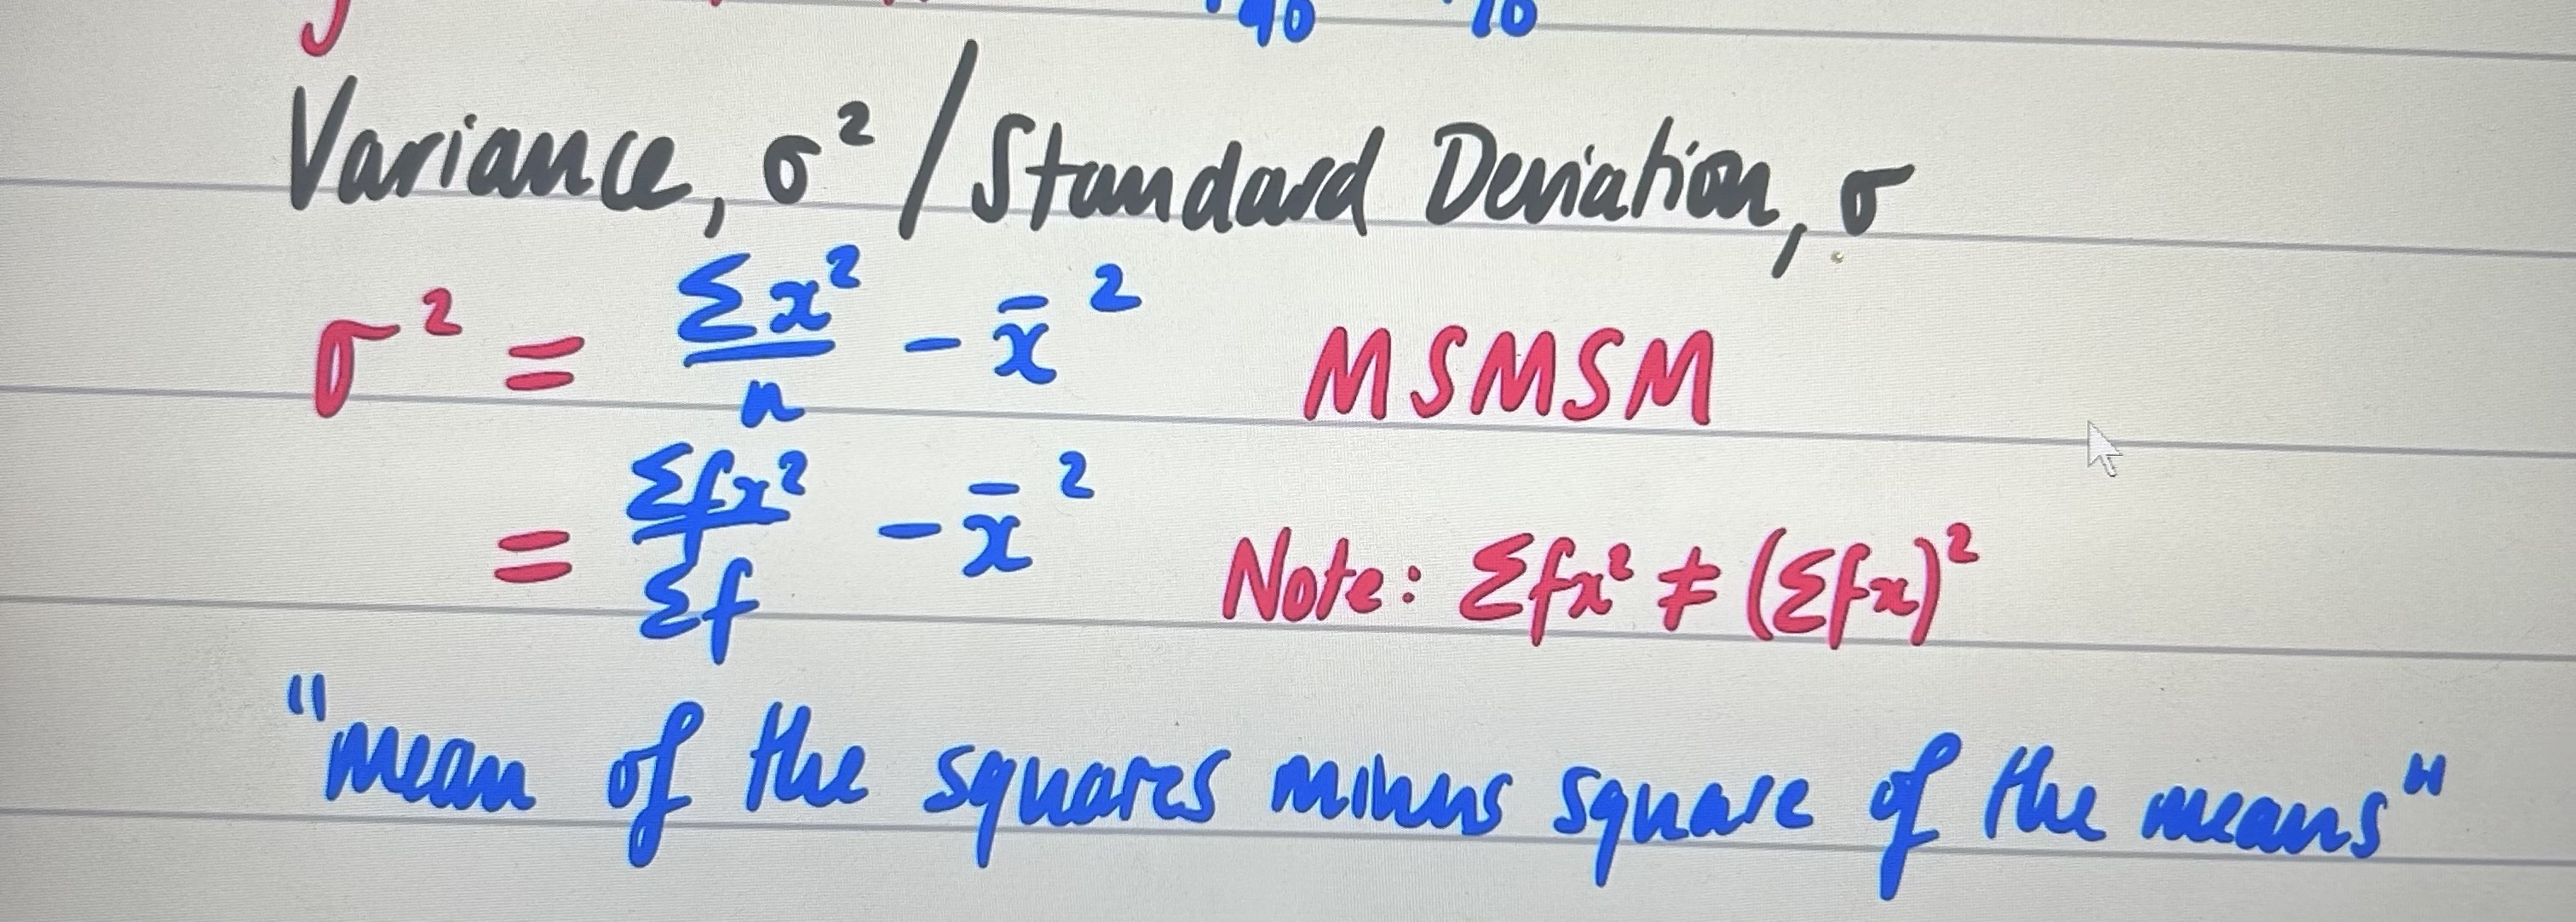 Variance, σ² / Standard Deviation, σ
σ² = Σx²/n - x̄² MSMSM
= Σfx²/Σf - x̄² Note: Σfx² ≠ (Σfx)²
"mean of the squares minus square of the means"